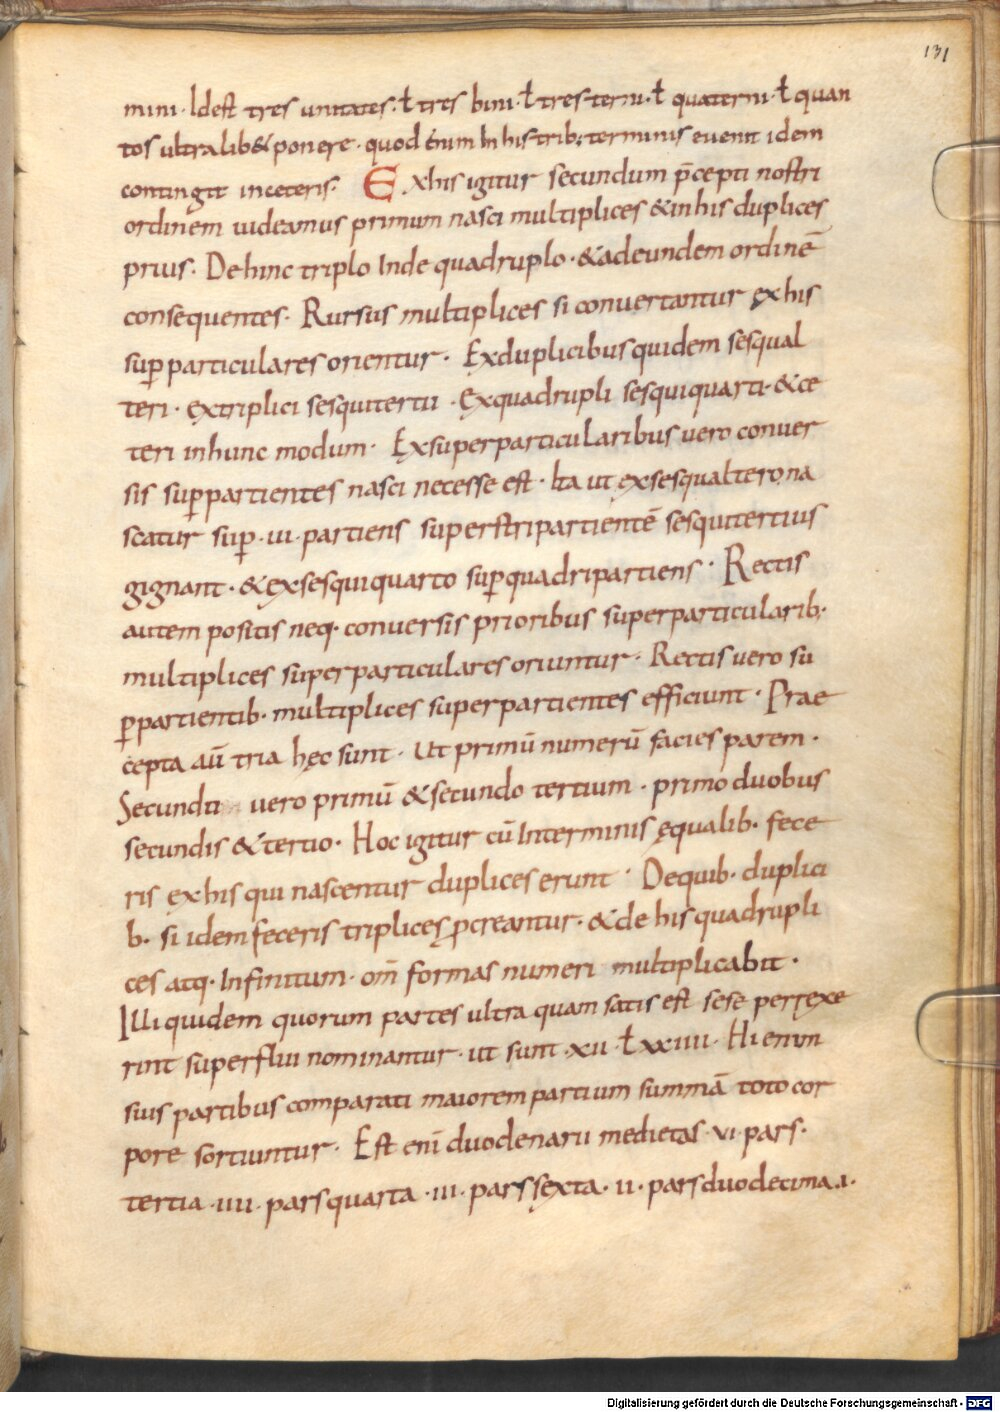 131
mini · Idest tres unitates · ł tres bini · ł tres terni · ł quaterni · ł quan
tos ultra lib& ponere · quod enim In his trib; terminis evenit idem
contingit in ceteris · Ex his igitur secundum p̄cepti nostri
ordinem uideamus primum nasci multiplices & in his duplices
prius · De hinc triplo Inde quadruplo · & ad eundem ordinē
consequentes · Rursus multiplices si convertantur ęx his
suꝑ particulares orientur · Ex duplicibus quidem sesqual
teri · ex triplici sesquitertii · Ex quadrupli sesquiquarti · & ce
teri in hunc modum · Ex superparticularibus vero conver
sis suꝑpartientes nasci necesse est · Ita ut ex sesqualtero na
scatur suꝑ · III · partiens superstripartientē sesquitertius
gignant · & ex sesquiquarto suꝑquadripartiens · Rectis
autem positis neq · conversis prioribus superparticularib ·
multiplices superparticulares oriuntur · Rectis vero su
ꝑpartientib · multiplices superpartientes efficiunt · Prae
cepta aū tria hęc sunt · Ut primū numerū facies parem ·
Secundu vero primū & secundo tertium · primo duobus
secundis & tertio · Hoc igitur cū In terminis ęqualib · fece
ris ęx his qui nascentur duplices erunt · De quib · duplici
b · si idem feceris triplices ꝓcreantur · & de his quadrupli
ces atq · Infinitum · om̄ formas numeri multiplicabit ·
Illi quidem quorum partes ultra quam satis est sese perręxe
rint superflui nominantur · ut sunt · XII · ł XXIIII · Hi enim
suis partibus comparati maiorem partium summā toto cor
pore sortiuntur · Est enī duodenarii medietas · VI · pars ·
tertia · IIII · pars quarta · III · pars sęxta · II · pars duodecima · I ·
Digitalisierung gefördert durch die Deutsche Forschungsgemeinschaft - DFG